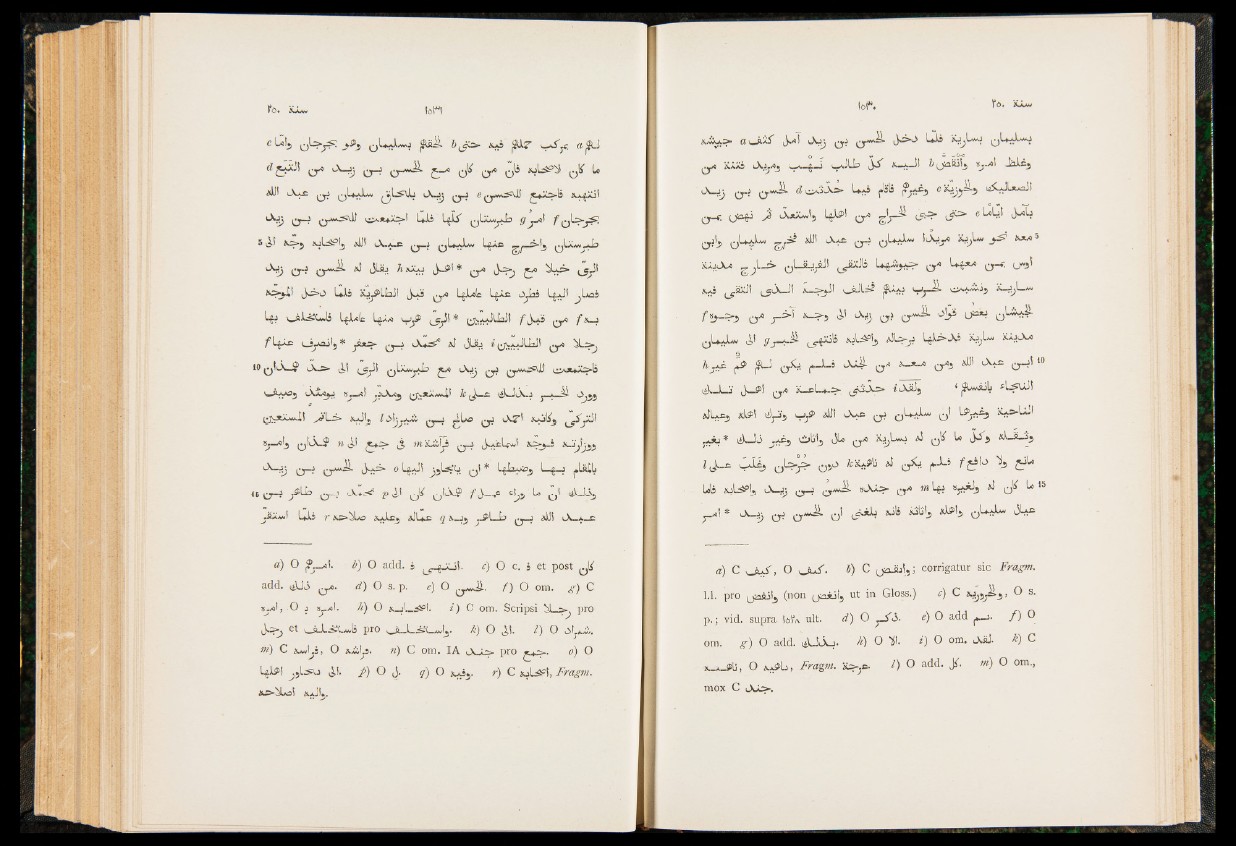 سنة ٢٥٠ ١٥٣٠
بسليمان بسارية فلمّا دخل الحسن بن زيد آمل كثف a جيشه
وغلظ امره وانقضّ b اليه كلّ طالب نهب ومريد فتنة من
الصعاليك والحوزيّة c وغيرهم فاقام فيما حُدّثت d الحسن بن زيد
بآمل ايّاما e حتى جبى الخراج من اهلها واستعدّ ثم نهض بمن
معه نحو سارية مريدا سليمان بن عبد الله فخرج سليمان وابن 5
اوس بمن معهما من جيوشهما فالتقى الفريقان خارج مدينة
سارية ونشبت الحرب بينهم فخالف الوجه الذى التقى فيه
الجيشان بعض قوّاد الحسن بن زيد الى وجه آخر من وجوه f
مدينة سارية فدخلها برجاله واصحابه فانتهى الخبر g الى سليمان
ابن عبد الله ومن معه من الجند فلم يكن لهم همّ غير h 10
النجاء بانفسهم ، ولقد i حدّثنى جماعة من اهل تلك
الناحية وغيرها ان سليمان بن عبد الله هرب وترك اهله وعياله
وثقله وكلّ ما كان له بسارية من مال واثاث وغير ذلك *بغير
مانع ولا دافع f فلم يكن له ناهية k دون جرجان وغلب على l
ما كان له ولغيره بها m من جنده الحسن بن زيد واصحابه فاما 15
عيال سليمان واهله واثاثه فانه بلغنى ان الحسن بن زيد *امر
a) C كيف, O كىف. b) C وانقص; corrigatur sic Fragm.
l.l. pro وانفض (non وانغض ut in Gloss.) c) C والحروريّة, O s.
p.; vid. supra ١٥٢٨ ult. d) O ذكر. e) O add بهم. f) O
om. g) O add. بذلك. h) O الا. i) O om. لقد. k) C
ناهيه, O باهية, Fragm. عرجة. l) O add. كل. m) O om.,
mox C جند.
سنة ٢٥٠ ١٥٣١
لهم a بمركب حملهم فيه حتى b الحقهم بسليمان وهو بجرجان واما c
ما كان لاصحابه فان من كان مع الحسن بن زيد من التبّع d
انتهبه فاجتمع للحسن e بن زيد بلحاق سليمان بن عبد الله
بجرجان f امرُ g طبرستان كلها فلمّا اجتمعت للحسن بن زيد
طبرستان واخرج عنها سليمان بن عبد الله واصحابه وجّه الى 5
الرىّ خيلا مع رجل من *اهل بيته h يقال له الحسن بن زيد
فصار اليها فطرد عنها عاملها من قبل الطاهريّة فلما دخل الموجّه
به f من قبل f الطالبيّين *الرىّ هرب منها عاملها فاستخلف بها
رجلا من الطالبيّين i يقال له محمّد بن جعفر *وانصرف عنها f
فاجتمعت للحسن بن زيد مع طبرستان الرىّ الى حدّ همذان 10
وورد الخبر بذلك على k المستعين ومدبّر امره يومئذ وصيف
التركىّ وكاتبه احمد بن صالح بن شيرزاد l واليه خاتم المستعين
ووزارته فوجّه اسماعيل بن فراشة m فى جمع الى n همذان وامره
بالمقام بها وضبطها *ان يتجاوز اليها o خيل الحسن بن زيد
وذلك انّ ما وراء عمل f همذان كان الى p محمّد بن طاهر بن 15
عبد الله بن طاهر وبه q عماله وعليه صلاحه r فلمّا استقرّ
a) O امرهم. b) O add. انتهى ف. c) O c. ف et post كان
add. من ذلك. d) O s. p. e) O الحسن. f) O om. g) C
امره, O امره ب. h) O اصحابه. i) C om. Scripsi رجلا pro
رجل et فاستخلف pro واستخلف. k) O الى. l) O شمراد.
m) C فراسه, O فراشه. n) C om. IA جند pro جمع. o) O
الى تجاوز اهلها. p) O ل. q) O وفيه. r) C اصحابه, Fragm.
واليه اصلاحه.